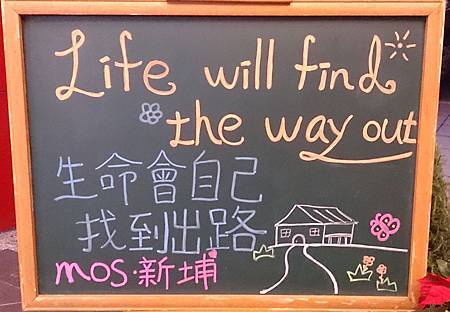 Life will find
the way out
生命會自己
找到出路
mos·新埔